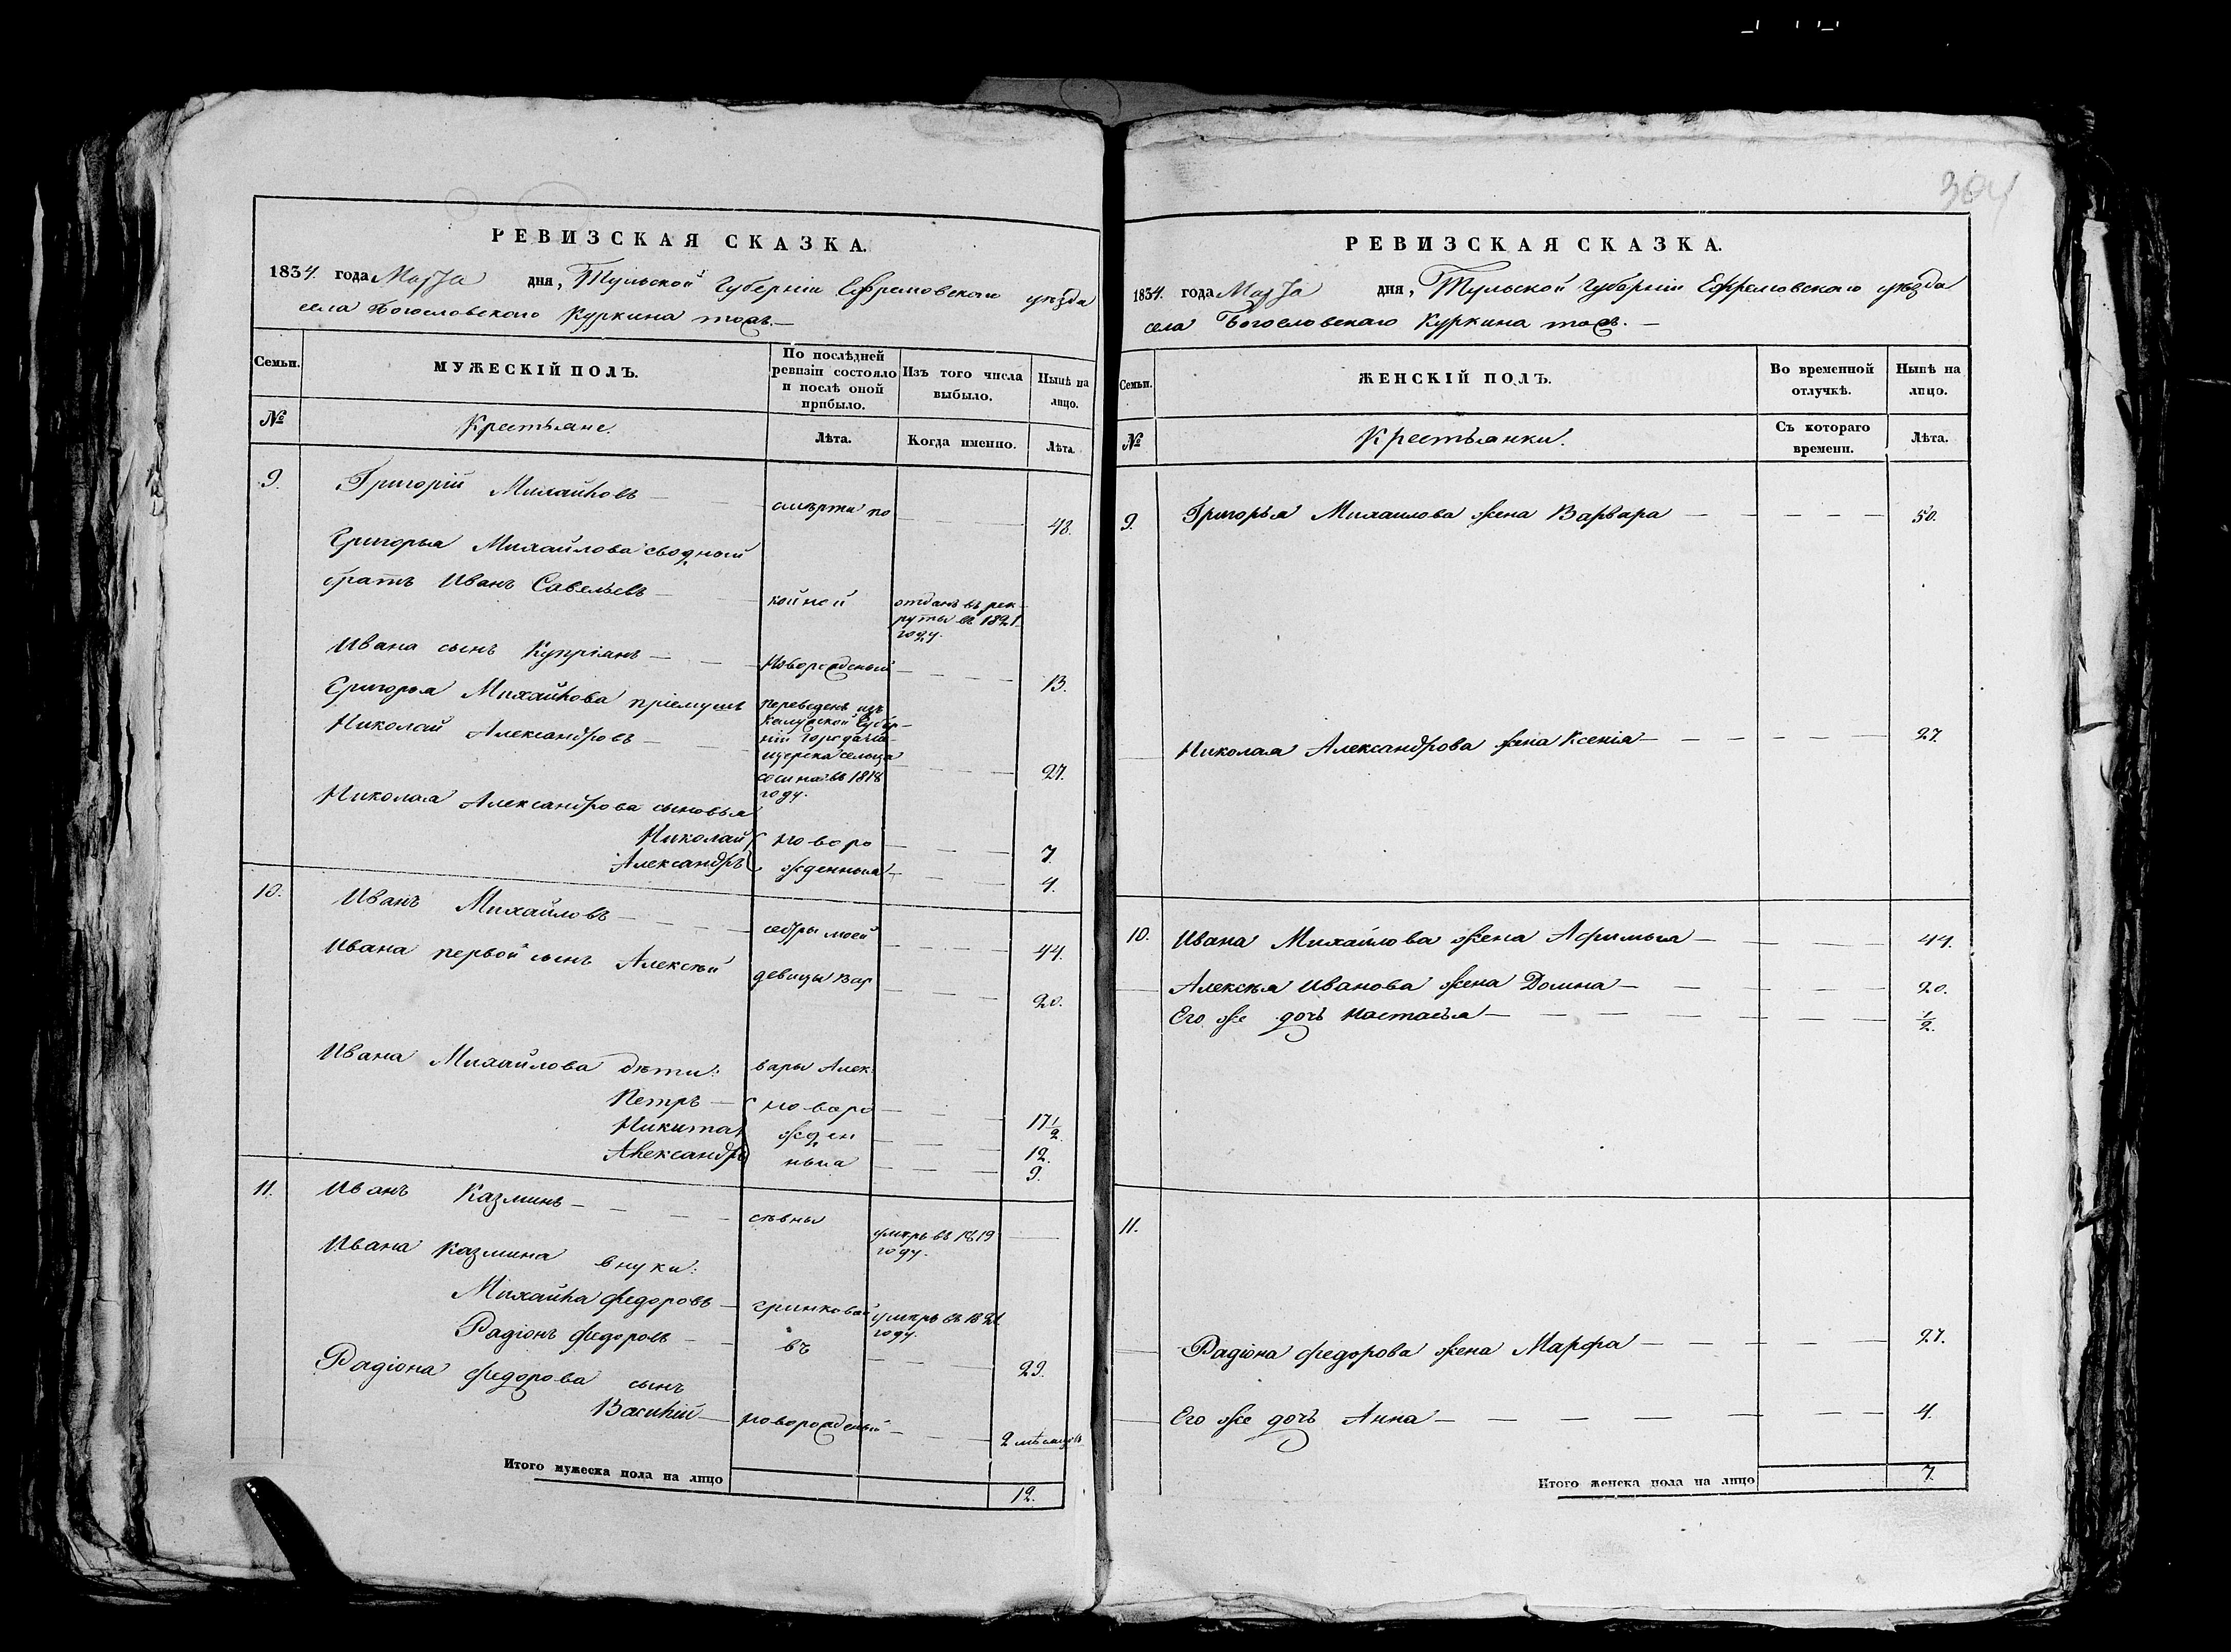 304
РЕВИЗСКАЯ СКАЗКА.
1834. года Марта дня, Тульской Губерніи Ефремовскаго уѣзда
села Богословскаго Куркина тожъ. —
Семьи. МУЖЕСКІЙ ПОЛЪ. По послѣдней ревизіи состояло и послѣ оной прибыло. Изъ того числа выбыло. Нынѣ на лицо.
№ Крестьяне. Лѣта. Когда именно. Лѣта.
9. Григорій Михайловъ — смерти по 48.
Григорья Михайлова сводной
братъ Иванъ Савельевъ — койней отданъ въ рек-
руты въ 1821
году.
Ивана сынъ Купріянъ — Новорожденый 13.
Григорья Михайлова пріемышъ переведенъ изъ
Калужской Губер-
Николай Александровъ — ніи города Ме-
щерска сельца
въ 1818 27.
году.
Николая Александрова сыновья
Николай новоро 7.
Александръ жденныя 4.
10. Иванъ Михайловъ — сестры моей 44.
Ивана первой сынъ Алексѣй девицы Вар 20.
Ивана Михайлова дѣти: вары Алек
Петръ — новоро 17 1/2.
Никита жден 12.
Александръ ныя 9.
11. Иванъ Казминъ — сѣвны умеръ въ 1819
году.
Ивана Казмина внуки:
Михайла Федоровъ — умеръ въ 1821
году.
Радіонъ Федоровъ — въ 29.
Радіона Федорова сынъ
Василій — новорожденый 2 мѣсяцовъ
Итого мужеска пола на лицо 12.
РЕВИЗСКАЯ СКАЗКА.
1834. года Марта дня, Тульской Губерніи Ефремовскаго уѣзда
села Богословскаго Куркина тожъ. —
Семьи. ЖЕНСКІЙ ПОЛЪ. Во временной отлучкѣ. Нынѣ на лицо.
№ Крестьянки. Съ котораго времени. Лѣта.
9. Григорья Михаилова жена Варвара — 50.
Николая Александрова жена Ксенія — 27.
10. Ивана Михайлова жена Афимья — 44.
Алексѣя Иванова жена Домна — 20.
Его же дочь Настасья — 1/2.
11.
Радіона Федорова жена Марфа — 27.
Его же дочь Анна — 4.
Итого женска пола на лицо 7.